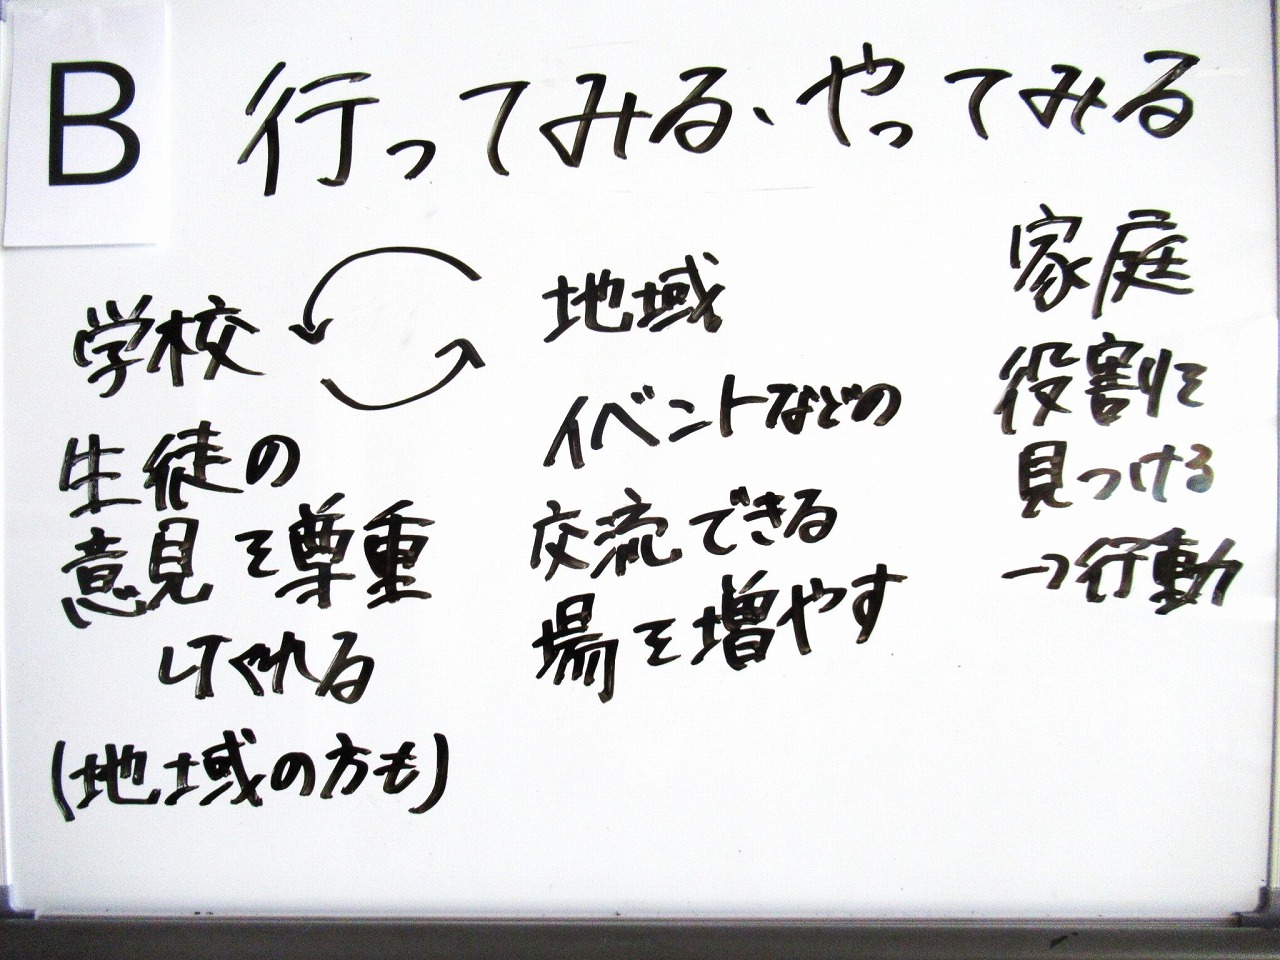 B
行ってみる、やってみる
学校
生徒の
意見を尊重
してくれる
(地域の方も)
地域
イベントなどの
交流できる
場を増やす
家庭
役割を
見つける
→行動